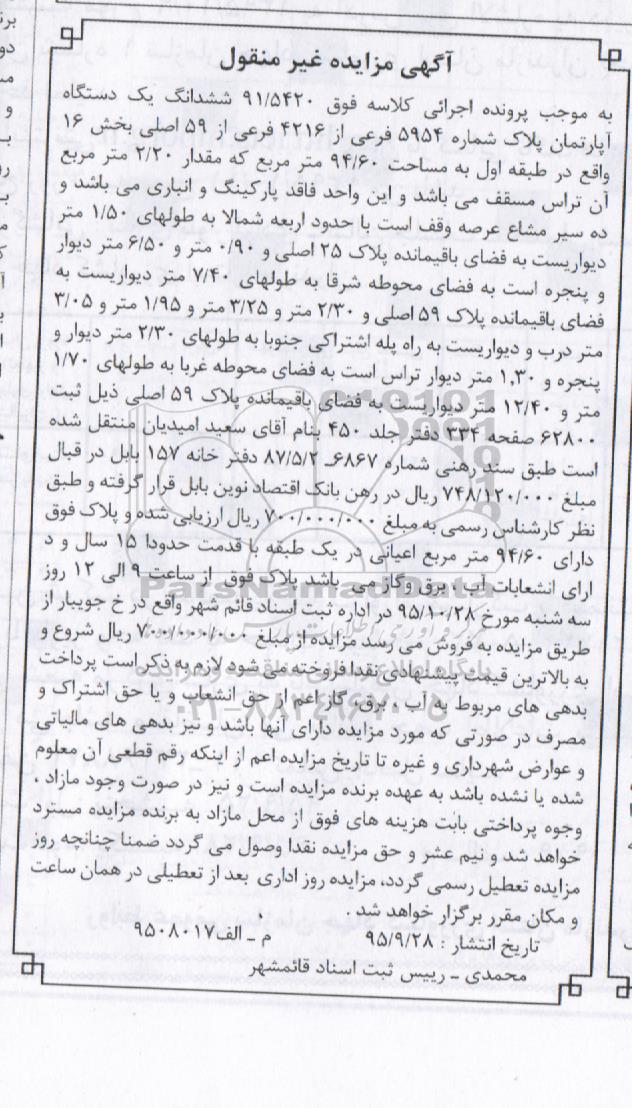 آگهی مزایده غیر منقول
به موجب پرونده اجرائی کلاسه فوق ۹۱/۵۴۲۰ ششدانگ یک دستگاه
آپارتمان پلاک شماره ۵۹۵۴ فرعی از ۴۲۱۶ فرعی از ۵۹ اصلی بخش ۱۶
واقع در طبقه اول به مساحت ۹۴/۶۰ متر مربع که مقدار ۲/۲۰ متر مربع
آن تراس مسقف می باشد و این واحد فاقد پارکینگ و انباری می باشد و
ده سیر مشاع عرصه وقف است با حدود اربعه شمالا به طولهای ۱/۵۰ متر
دیواریست به فضای باقیمانده پلاک ۲۵ اصلی و ۰/۹۰ متر و ۶/۵۰ متر دیوار
و پنجره است به فضای محوطه شرقا به طولهای ۷/۴۰ متر دیواریست به
فضای باقیمانده پلاک ۵۹ اصلی و ۲/۳۰ متر و ۳/۲۵ متر و ۱/۹۵ متر و ۳/۰۵
متر درب و دیواریست به راه پله اشتراکی جنوبا به طولهای ۲/۳۰ متر دیوار و
پنجره و ۱,۳۰ متر دیوار تراس است به فضای محوطه غربا به طولهای ۱/۷۰
متر و ۱۲/۴۰ متر دیواریست به فضای باقیمانده پلاک ۵۹ اصلی ذیل ثبت
۶۲۸۰۰ صفحه ۳۳۴ دفتر جلد ۴۵۰ بنام آقای سعید امیدیان منتقل شده
است طبق سند رهنی شماره ۶۸۶۷ـ ۸۷/۵/۲ دفتر خانه ۱۵۷ بابل در قبال
مبلغ ۷۴۸/۱۲۰/۰۰۰ ریال در رهن بانک اقتصاد نوین بابل قرار گرفته و طبق
نظر کارشناس رسمی به مبلغ ۷۰۰/۰۰۰/۰۰۰ ریال ارزیابی شده و پلاک فوق
دارای ۹۴/۶۰ متر مربع اعیانی در یک طبقه با قدمت حدودا ۱۵ سال و د
ارای انشعابات آب ، برق وگاز می باشد پلاک فوق از ساعت ۹ الی ۱۲ روز
سه شنبه مورخ ۹۵/۱۰/۲۸ در اداره ثبت اسناد قائم شهر واقع در خ جویبار از
طریق مزایده به فروش می رسد مزایده از مبلغ ۷۰۰/۰۰۰/۰۰۰ ریال شروع و
به بالاترین قیمت پیشنهادی نقدا فروخته می شود لازم به ذکر است پرداخت
بدهی های مربوط به آب ، برق، گاز اعم از حق انشعاب و یا حق اشتراک و
مصرف در صورتی که مورد مزایده دارای آنها باشد و نیز بدهی های مالیاتی
و عوارض شهرداری و غیره تا تاریخ مزایده اعم از اینکه رقم قطعی آن معلوم
شده یا نشده باشد به عهده برنده مزایده است و نیز در صورت وجود مازاد ،
وجوه پرداختی بابت هزینه های فوق از محل مازاد به برنده مزایده مسترد
خواهد شد و نیم عشر و حق مزایده نقدا وصول می گردد ضمنا چنانچه روز
مزایده تعطیل رسمی گردد، مزایده روز اداری بعد از تعطیلی در همان ساعت
و مکان مقرر برگزار خواهد شد .
تاریخ انتشار : ۹۵/۹/۲۸ م - الف۹۵۰۸۰۱۷
محمدی - رییس ثبت اسناد قائمشهر
ParsNamadData
۰۲۱-۸۸۳۴۹۶۷۰-۵